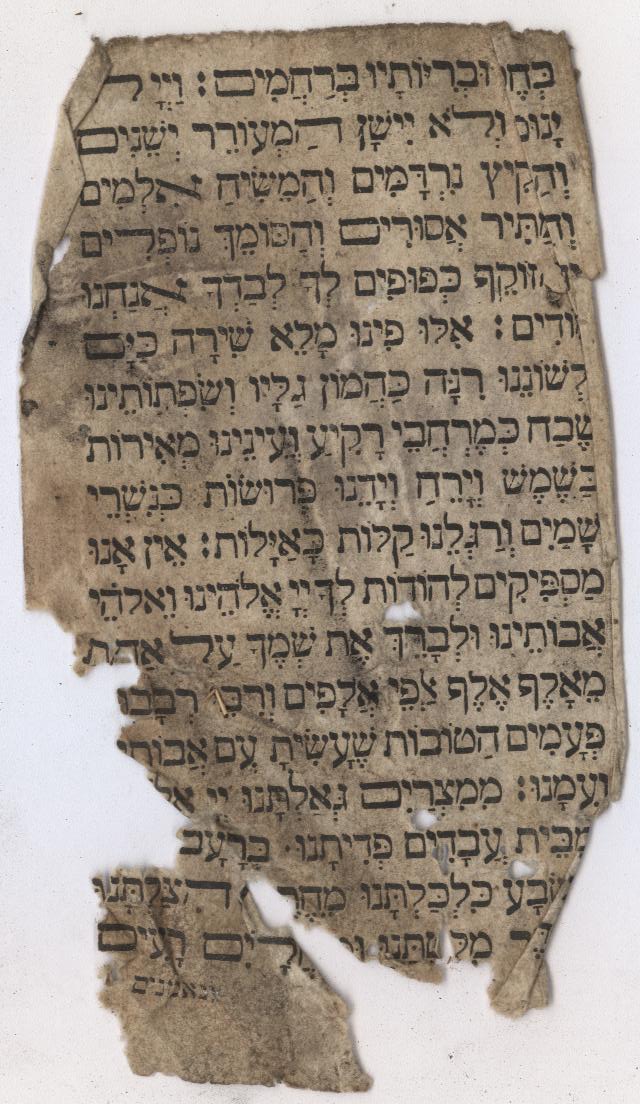 בְּחֶ וּבְרִיּוֹתָיו בְּרַחֲמִים: וַיְיָ ל
יָנוּם וְלֹא יִישָׁן הַמְעוֹרֵר יְשֵׁנִים
וְהַקִּיץ נִרְדָּמִים וְהַמֵּשִׂיחַ אִלְּמִים
וְהַמַּתִּיר אֲסוּרִים וְהַסּוֹמֵךְ נוֹפְלִים
הזוֹקֵף כְּפוּפִים לְךָ לְבַדְּךָ אֲנַחְנוּ
וֹדִים: אִלּוּ פִינוּ מָלֵא שִׁירָה כַיָּם
לְשׁוֹנֵנוּ רִנָּה כַּהֲמוֹן גַּלָּיו וְשִׂפְתוֹתֵינוּ
שֶׁבַח כְּמֶרְחֲבֵי רָקִיעַ וְעֵינֵינוּ מְאִירוֹת
כַּשֶּׁמֶשׁ וְיָרֵחַ וְיָדֵנוּ פְּרוּשׂוֹת כְּנִשְׁרֵי
שָׁמַיִם וְרַגְלֵנוּ קַלּוֹת כָּאַיָּלוֹת: אֵין אָנוּ
מַסְפִּיקִים לְהוֹדוֹת לְךָ יְיָ אֱלֹהֵינוּ וֵאלֹהֵי
אֲבוֹתֵינוּ וּלְבָרֵךְ אֶת שְׁמֶךָ עַל אַחַת
מֵאָלֶף אֶלֶף אַלְפֵי אֲלָפִים וְרִבֵּי רִבְבוּ
פְּעָמִים הַטּוֹבוֹת שֶׁעָשִׂיתָ עִם אֲבוֹתֵי
וְעִמָּנוּ: מִמִּצְרַיִם גְּאַלְתָּנוּ יְיָ אל
מִבֵּית עֲבָדִים פְּדִיתָנוּ. בְּרָעָב
שָׂבָע כִּלְכַּלְתָּנוּ מֵחֶר הִצַּלְתָּנוּ
ר מִלַּטְתָּנוּ וּמ לָיִם רָעִים
ונאמנים